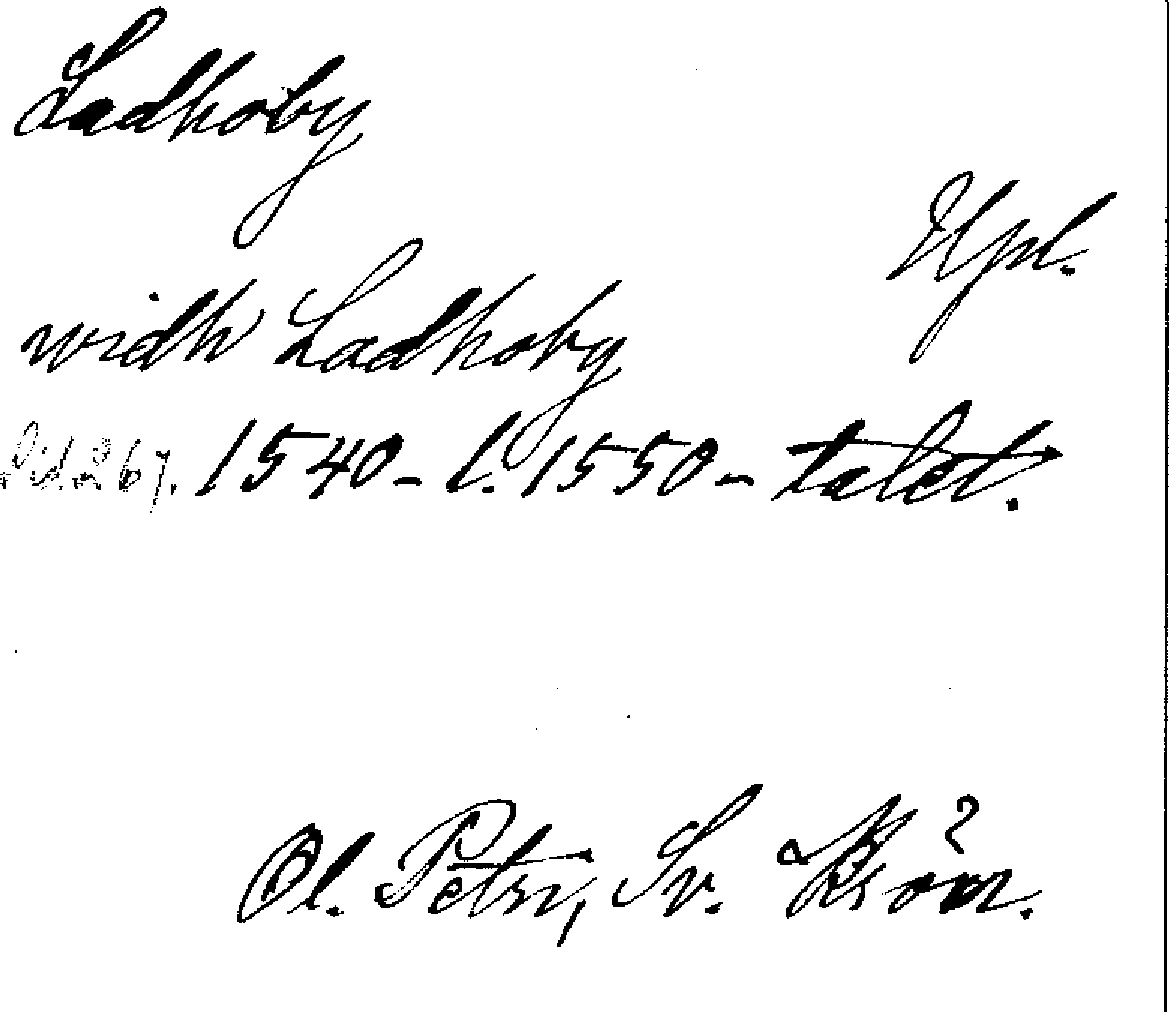 Ladhoby
Upl.
widh Ladhoby
1540- l. 1550- talet.
Ol. Petri, Sv. Krön.